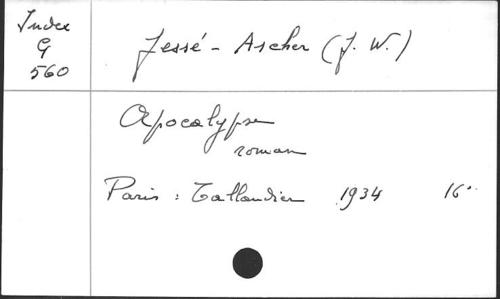 Index
G
560
Jessé-Ascher (J. W.)
Apocalypse
roman
Paris : Tallandier 1934 16°